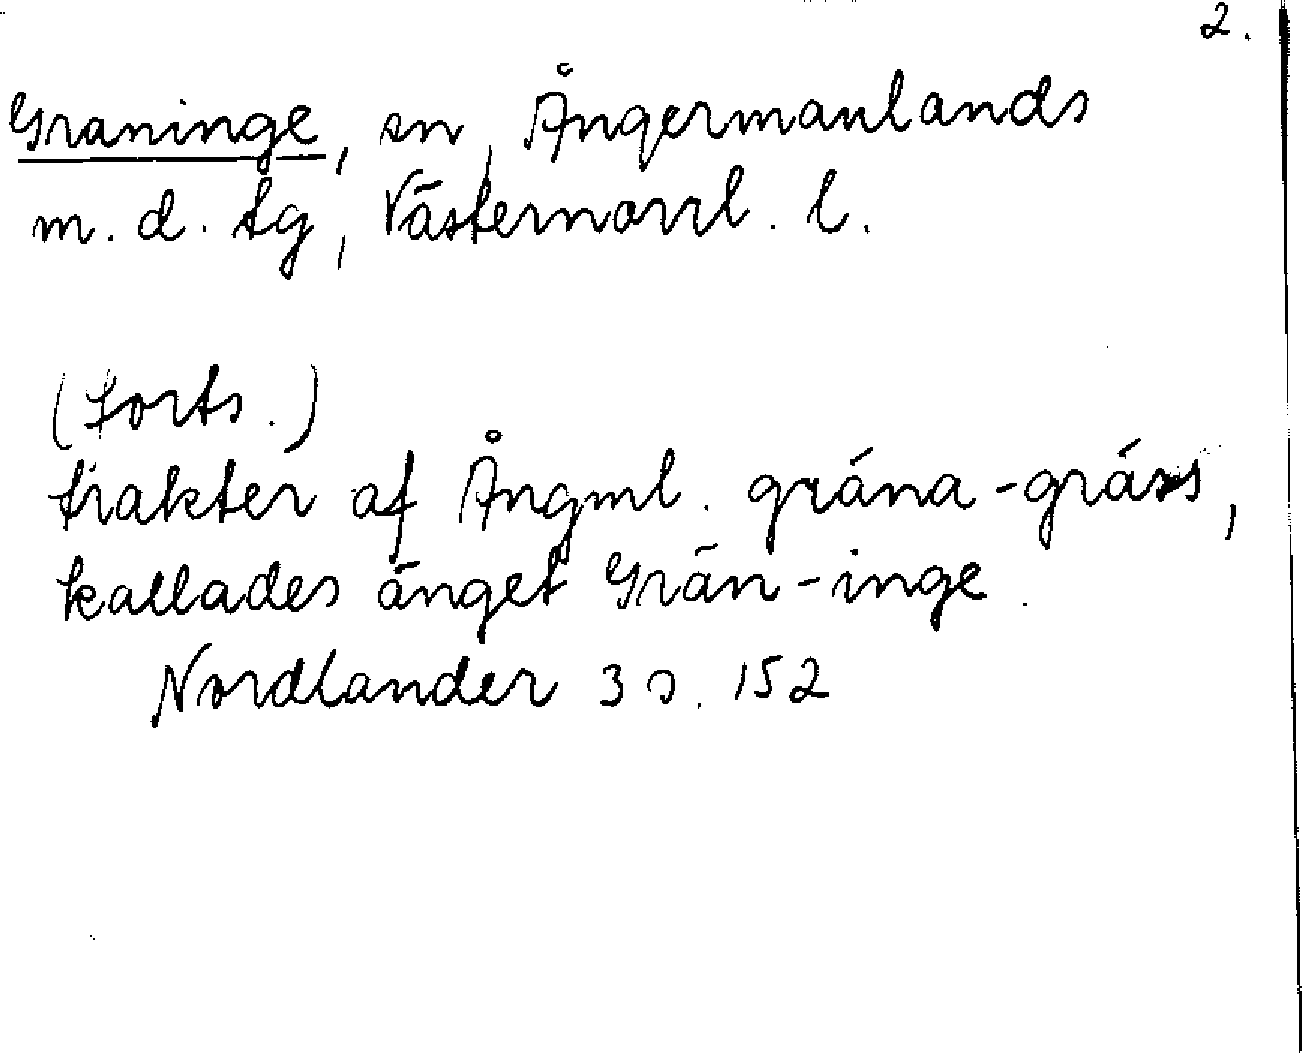 2.
Graninge, sn, Ångermanlands
m. d. tg, Västernorrl. l.
(Forts.)
trakter af Ångml. grána-gráss,
kallades änget Grän-inge.
Nordlander 3 s. 152